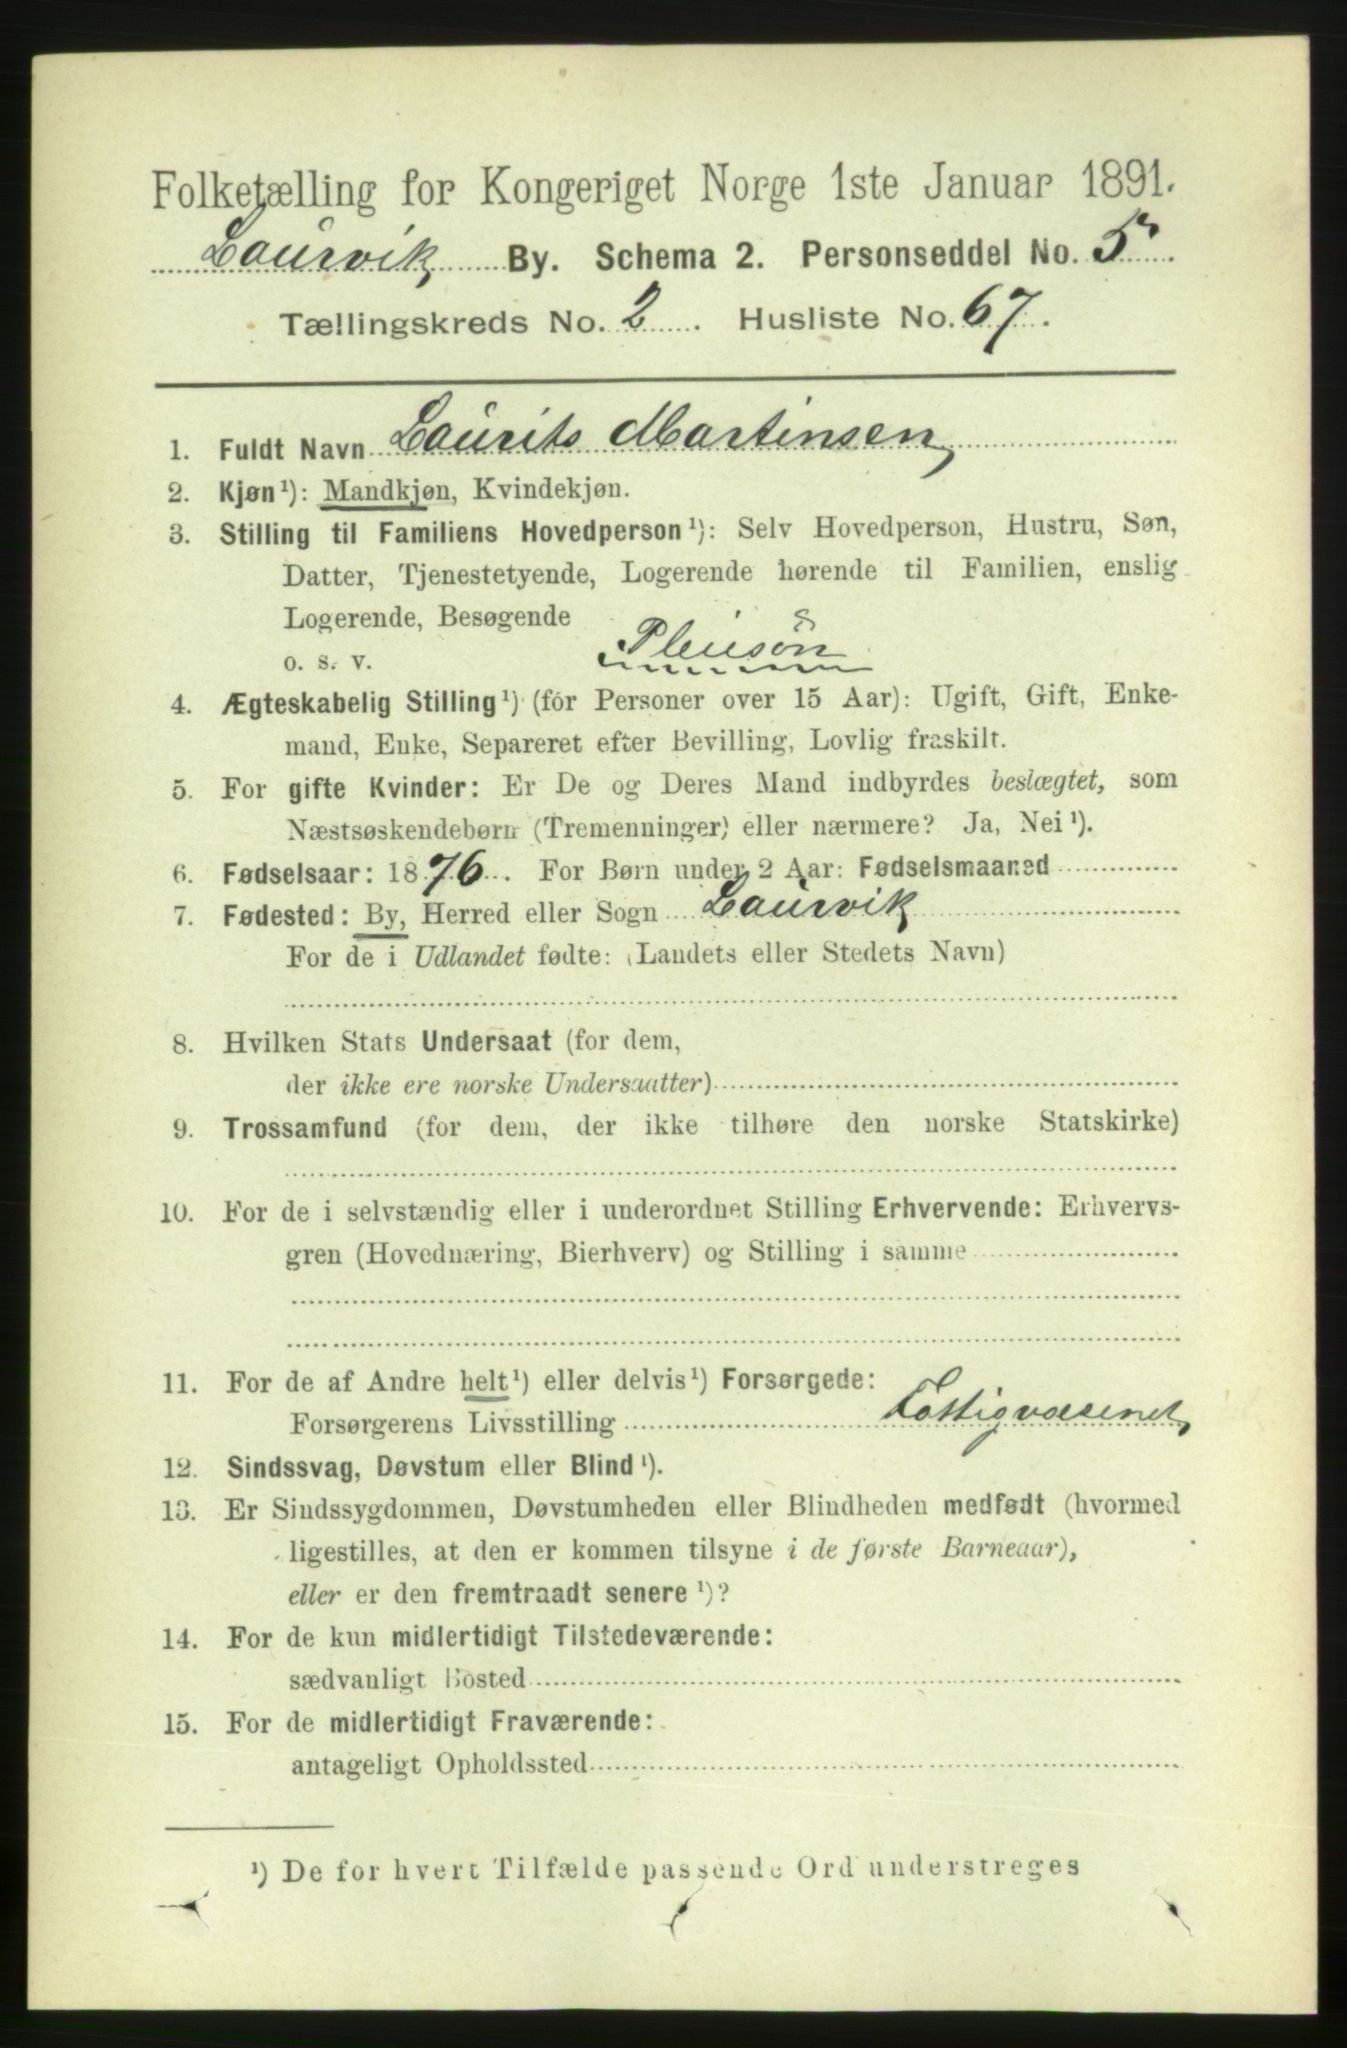 Folketælling for Kongeriget Norge 1ste Januar 1891.
Laurvik By. Schema 2. Personseddel No. 5
Tællingskreds No. 2. Husliste No. 67.
1. Fuldt Navn Laurits Martinsen
2. Kjøn¹): Mandkjøn, Kvindekjøn.
3. Stilling til Familiens Hovedperson¹): Selv Hovedperson, Hustru, Søn,
Datter, Tjenestetyende, Logerende hørende til Familien, enslig
Logerende, Besøgende
o. s. v. Pleiesøn
4. Ægteskabelig Stilling¹) (for Personer over 15 Aar): Ugift, Gift, Enke-
mand, Enke, Separeret efter Bevilling, Lovlig fraskilt.
5. For gifte Kvinder: Er De og Deres Mand indbyrdes beslægtet, som
Næstsøskendebørn (Tremenninger) eller nærmere? Ja, Nei¹).
6. Fødselsaar: 1876. For Børn under 2 Aar: Fødselsmaaned
7. Fødested: By, Herred eller Sogn Laurvik
For de i Udlandet fødte: (Landets eller Stedets Navn)
8. Hvilken Stats Undersaat (for dem,
der ikke ere norske Undersaatter)
9. Trossamfund (for dem, der ikke tilhøre den norske Statskirke)
10. For de i selvstændig eller i underordnet Stilling Erhvervende: Erhvervs-
gren (Hovednæring, Bierhverv) og Stilling i samme
11. For de af Andre helt¹) eller delvis¹) Forsørgede:
Forsørgerens Livsstilling Fattigvæsenet
12. Sindssvag, Døvstum eller Blind¹).
13. Er Sindssygdommen, Døvstumheden eller Blindheden medfødt (hvormed
ligestilles, at den er kommen tilsyne i de første Barneaar),
eller er den fremtraadt senere¹)?
14. For de kun midlertidigt Tilstedeværende:
sædvanligt Bosted
15. For de midlertidigt Fraværende:
antageligt Opholdssted
¹) De for hvert Tilfælde passende Ord understreges